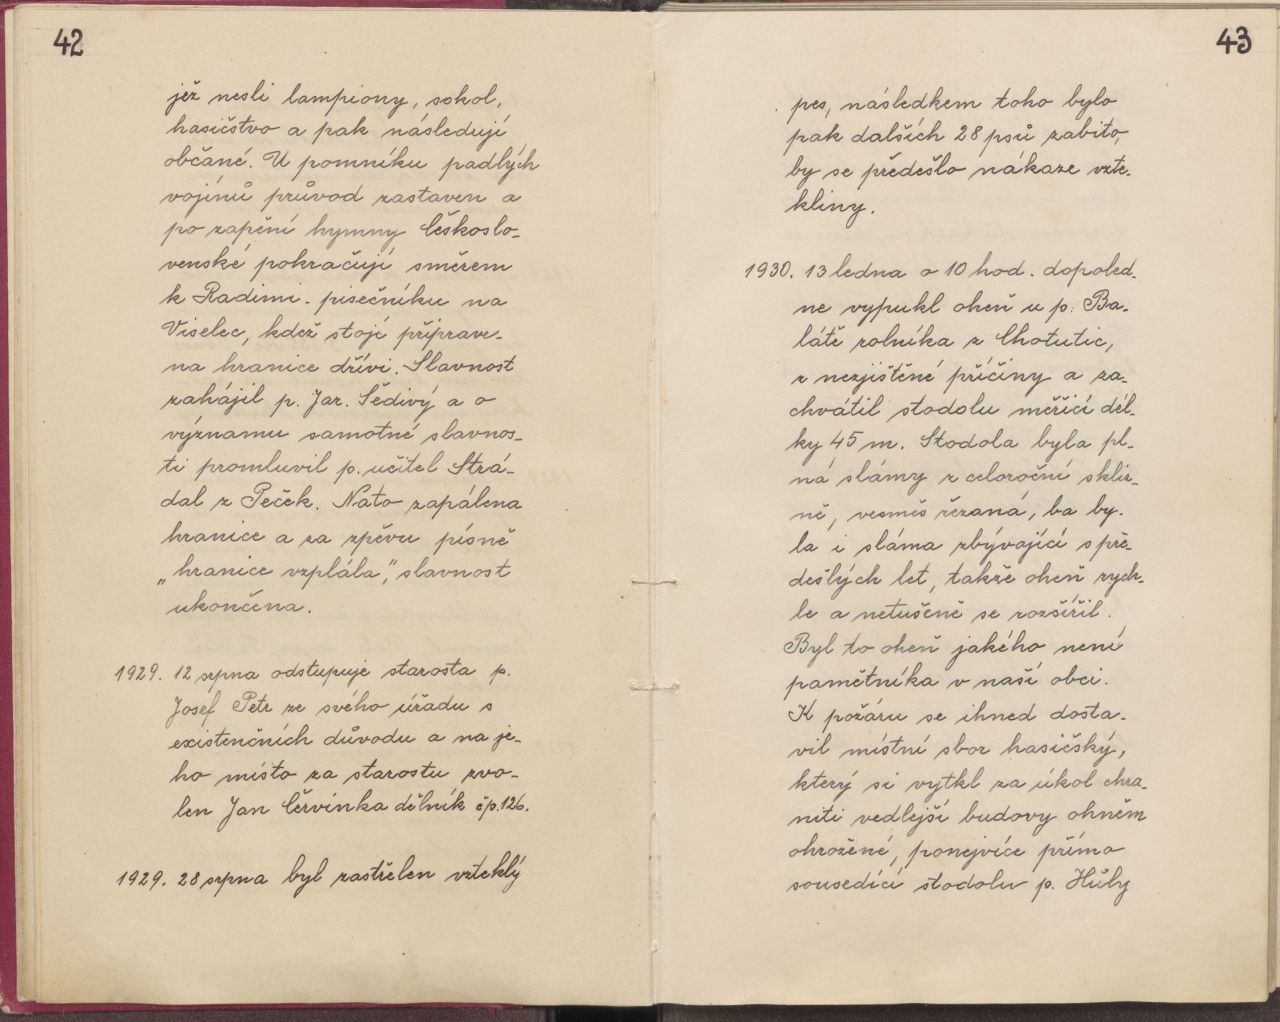 42
jěž nesli lampiony, sokol,
hasičstvo a pak následují
občané. U pomníku padlých
vojínů průvod zastaven a
po zapění hymny Českoslo-
venské pokračují směrem
k Radimi - písečníku na
Viselec, kdež stojí připrave-
na hranice dříví. Slavnost
zahájil p. Jar. Šedivý a o
významu samotné slavnos-
ti promluvil p. učitel Strá-
dal z Peček. Nato zapálena
hranice a za zpěvu písně
„hranice vzplála", slavnost
ukončena.
1929. 12 srpna odstupuje starosta p.
Josef Petr ze svého úřadu s
existenčních důvodu a na je-
ho místo za starostu zvo-
len Jan Červinka dělník čp.126.
1929. 28 srpna byl zastřelen vzteklý
43
pes, následkem toho bylo
pak dalších 28 psů zabito,
by se předešlo nákaze vzte-
kliny.
1930. 13 ledna o 10 hod. dopoled-
ne vypukl oheň u p. Ba-
látě rolníka z Chotutic,
z nezjištěné příčiny a za-
chvátil stodolu měřící dél-
ky 45 m. Stodola byla pl-
ná slámy z celoroční skliz-
ně, vesměs řezaná, ba by-
la i sláma zbývající s pře-
dešlých let, takže oheň rych-
le a netušeně se rozšířil.
Byl to oheň jakého není
pamětníka v naší obci.
K požáru se ihned dosta-
vil místní sbor hasičský,
který si vytkl za úkol chra-
niti vedlejší budovy ohněm
ohrožené, ponejvíce přímo
sousedící stodolu p. Hůly